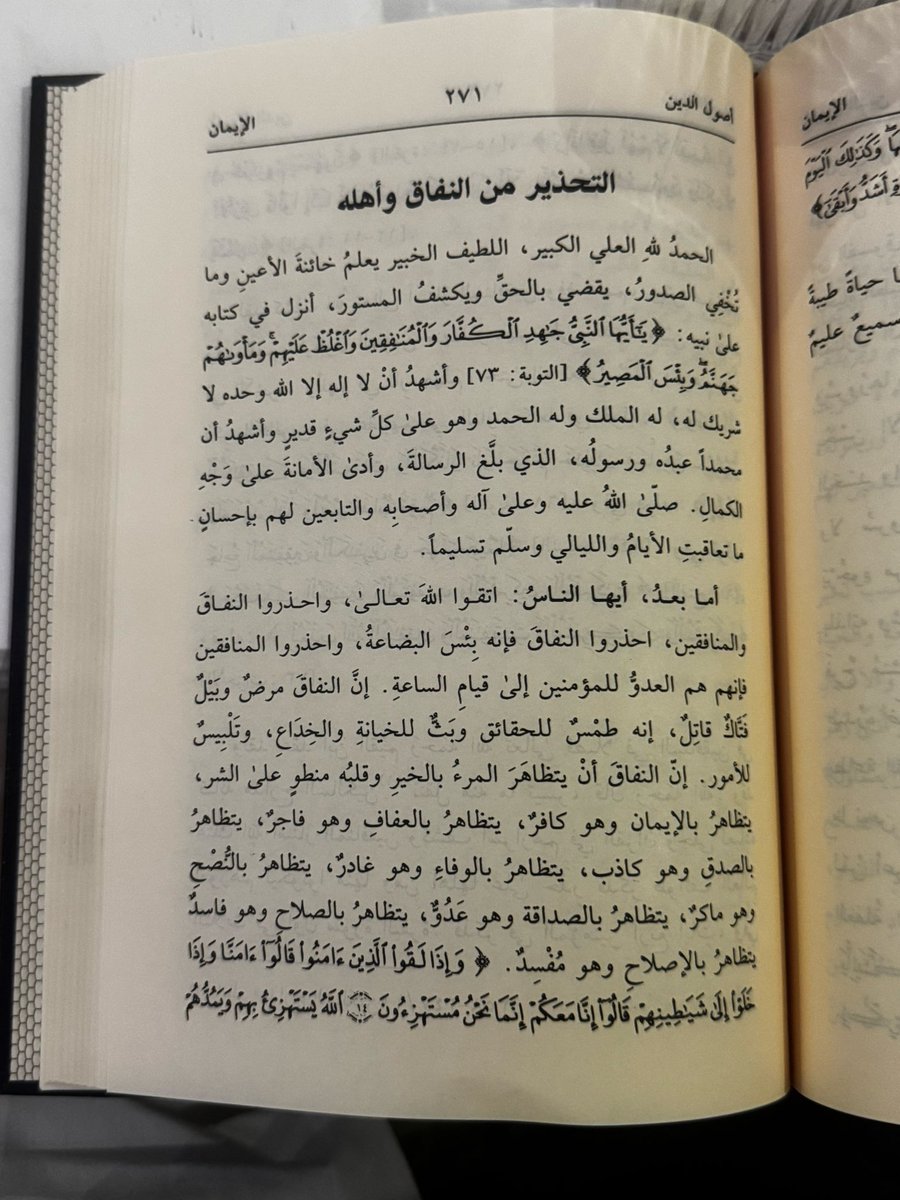 أصول الدين
٢٧١
الإيمان
التحذير من النفاق وأهله
الحمدُ للهِ العلي الكبير، اللطيف الخبير يعلمُ خائنةَ الأعينِ وما
تُخْفِي الصدورُ، يقضي بالحقِّ ويكشفُ المستورَ، أنزل في كتابه
علىٰ نبيه: ﴿يَٰٓأَيُّهَا ٱلنَّبِيُّ جَٰهِدِ ٱلْكُفَّارَ وَٱلْمُنَٰفِقِينَ وَٱغْلُظْ عَلَيْهِمْ ۚ وَمَأْوَىٰهُمْ
جَهَنَّمُ ۖ وَبِئْسَ ٱلْمَصِيرُ﴾ [التوبة: ٧٣] وأشهدُ أنْ لا إله إلا الله وحده لا
شريك له، له الملك وله الحمد وهو علىٰ كلِّ شيءٍ قديرٍ وأشهدُ أن
محمداً عبدُه ورسولُه، الذي بلَّغ الرسالةَ، وأدىٰ الأمانةَ علىٰ وَجْهِ
الكمالِ. صلّىٰ اللهُ عليه وعلىٰ آله وأصحابِه والتابعين لهم بإحسانٍ
ما تعاقبتِ الأيامُ والليالي وسلّم تسليماً.
أما بعدُ، أيها الناسُ: اتقوا اللهَ تعالىٰ، واحذروا النفاقَ
والمنافقين، احذروا النفاقَ فإنه بِئْسَ البضاعةُ، واحذروا المنافقين
فإنهم هم العدوُّ للمؤمنين إلىٰ قيامِ الساعةِ. إنَّ النفاقَ مرضٌ وَبَيْلٌ
فَتَّاكٌ قاتِلٌ، إنه طمْسٌ للحقائق وبَثٌّ للخيانةِ والخِدَاعِ، وتَلْبِيسٌ
للأمور. إنّ النفاقَ أنْ يتظاهَرَ المرءُ بالخيرِ وقلبُه منطوٍ علىٰ الشر،
يتظاهرُ بالإيمان وهو كافرٌ، يتظاهرُ بالعفافِ وهو فاجرٌ، يتظاهرُ
بالصدقِ وهو كاذب، يتظاهرُ بالوفاءِ وهو غادرٌ، يتظاهرُ بالنُّصْحِ
وهو ماكرٌ، يتظاهرُ بالصداقة وهو عَدُوٌّ، يتظاهرُ بالصلاحِ وهو فاسدٌ
يتظاهرُ بالإصلاحِ وهو مُفْسِدٌ. ﴿ وَإِذَا لَقُوا۟ ٱلَّذِينَ ءَامَنُوا۟ قَالُوٓا۟ ءَامَنَّا وَإِذَا
خَلَوْا۟ إِلَىٰ شَيَٰطِينِهِمْ قَالُوٓا۟ إِنَّا مَعَكُمْ إِنَّمَا نَحْنُ مُسْتَهْزِءُونَ ١٤ ٱللَّهُ يَسْتَهْزِئُ بِهِمْ وَيَمُدُّهُمْ
الإيمان
وَكَذَٰلِكَ ٱلْيَوْمَ
أَشَدُّ وَأَبْقَىٰٓ﴾
حياةً طيبةً
سميعٌ عليمٌ